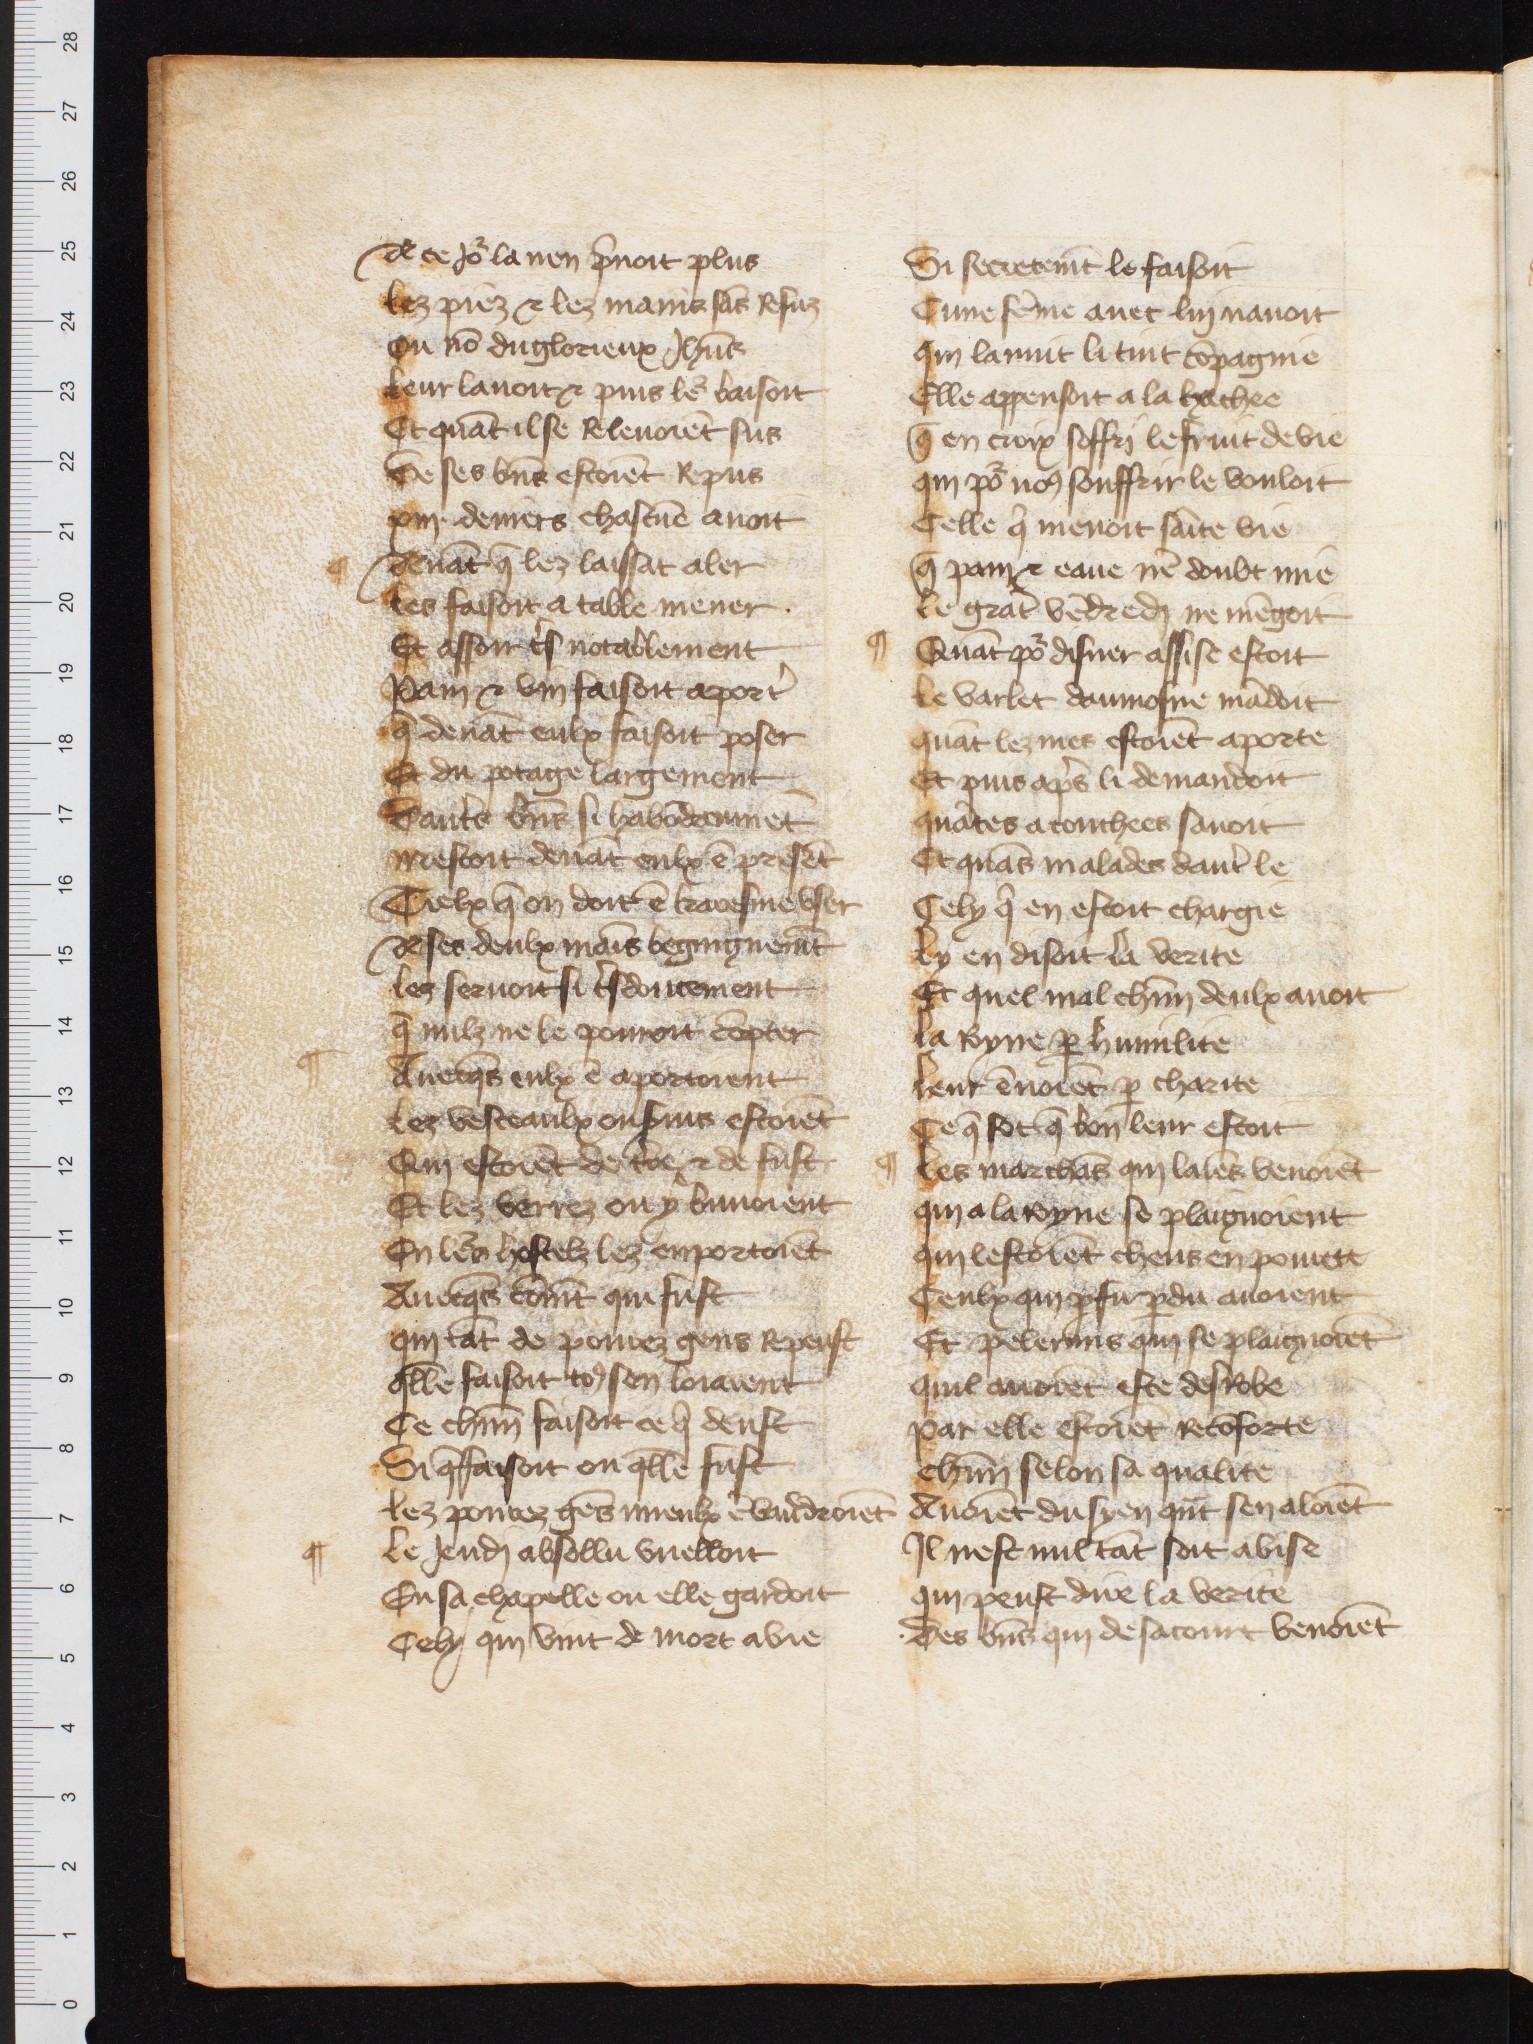 De ce jo᷑ la nen p̄noit plus
Lez piez ⁊ lez mains sās refuz
Ou nō du glorieux Jhūs
Leur lavoit ⁊ puis les baisoit
Et quāt il se relevoiēt sus
De ses bn̄s estoiēt repus
xiij deniers chascūe avoit
¶ Devāt q̄ lez laissat aler
Les faisoit a table mener
Et assoir tr̄s notablement
Pain ⁊ vin faisoit aporter
q̄ devāt eulx faisoit poser
Et du potage largement
Dautrs bn̄s si habōdaumēt
mestoit devāt eulx ē presēt
Tielx q̄ on doit ē karesme user
De ses deulx maīs begnignemēt
Les servoit si tr̄s doucement
q̄ nulz ne le pourroit cōpter
¶ Avecq̄s eulx ē aportoient
Lez vesceaulx ou servis estoiēt
Qui estoiēt de tr̄e ⁊ de fust
Et lez verrez ou y buvoient
En lēs hostelz lez emportoiēt
Avecq̄s cōmt qui fust
qui tāt de povrez gens repeust
qlle faisoit toꝰ sen loiaient
Ce chūn faisoit ce q̄ deust
Si q̄ faisoit ou qlle fust
Lez povrez gēs mieulx ē vaudroiēt
¶ Le jeudi absollu vuelloit
En sa chapelle ou elle gardoit
Cely qui vint de mort a vie
Si secretemt le faisoit
Cune fēme avec luy navoit
qui la nuit li tint cōpagnie
Elle appensoit a la hachee
q̄ en croix soffri le fruit de vie
qui po᷑ noꝰ souffrir le vouloit
Celle q̄ menoit saīte vie
q̄ pain ⁊ eaue nē doubt mie
Le grāt vēdredi ne mēgoit
¶ Quāt po᷑ disner assise estoit
Le varlet daumosne mādoit
quāt lez mes estoiēt aporte
Et puis ap̄s li demandoit
quātes acouchees savoit
Et quās malades dautr le
Cely q̄ en estoit chargie
Ly en disoit la verite
Et quel mal chūn deulx avoit
La Royne p̄ humilite
Leur ēnoiēt p̄ charite
Ce q̄ sot q̄ bon leur estoit
¶ Les marchās qui lalēs venoiēt
qui a la Royne se plaignoient
qui lestoiēt cheus en povrete
Ceulx qui p̄ fu p̄du avoient
Et pelerins qui se plaignoiēt
quil avoiēt este desrobe
Par elle estoiēt recōforte
chūn selon sa qualite
Avoiēt du syen qnt sen aloiēt
Il nest nul tāt soit avise
qui peust dire la verite
Des bn̄s qui de sa court venoiēt